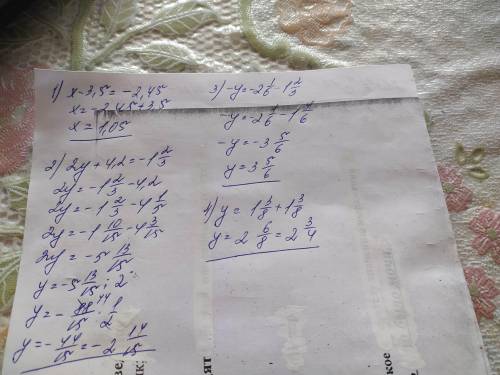 1) x-3,5 = -2,45
x = -2,45+3,5
x = 1,05
2) 2y + 4,2 = -1 2/3
2y = -1 2/3 - 4,2
2y = -1 2/3 - 4 1/5
2y = -1 10/15 - 4 3/15
2y = -5 13/15
y = -5 13/15 : 2
y = - 88/15 · 1/2
y = - 44/15 = -2 14/15
3) -y = -2 1/6 - 1 2/3
-y = -2 1/6 - 1 4/6
-y = -3 5/6
y = 3 5/6
4) y = 1 3/8 + 1 3/8
y = 2 6/8 = 2 3/4